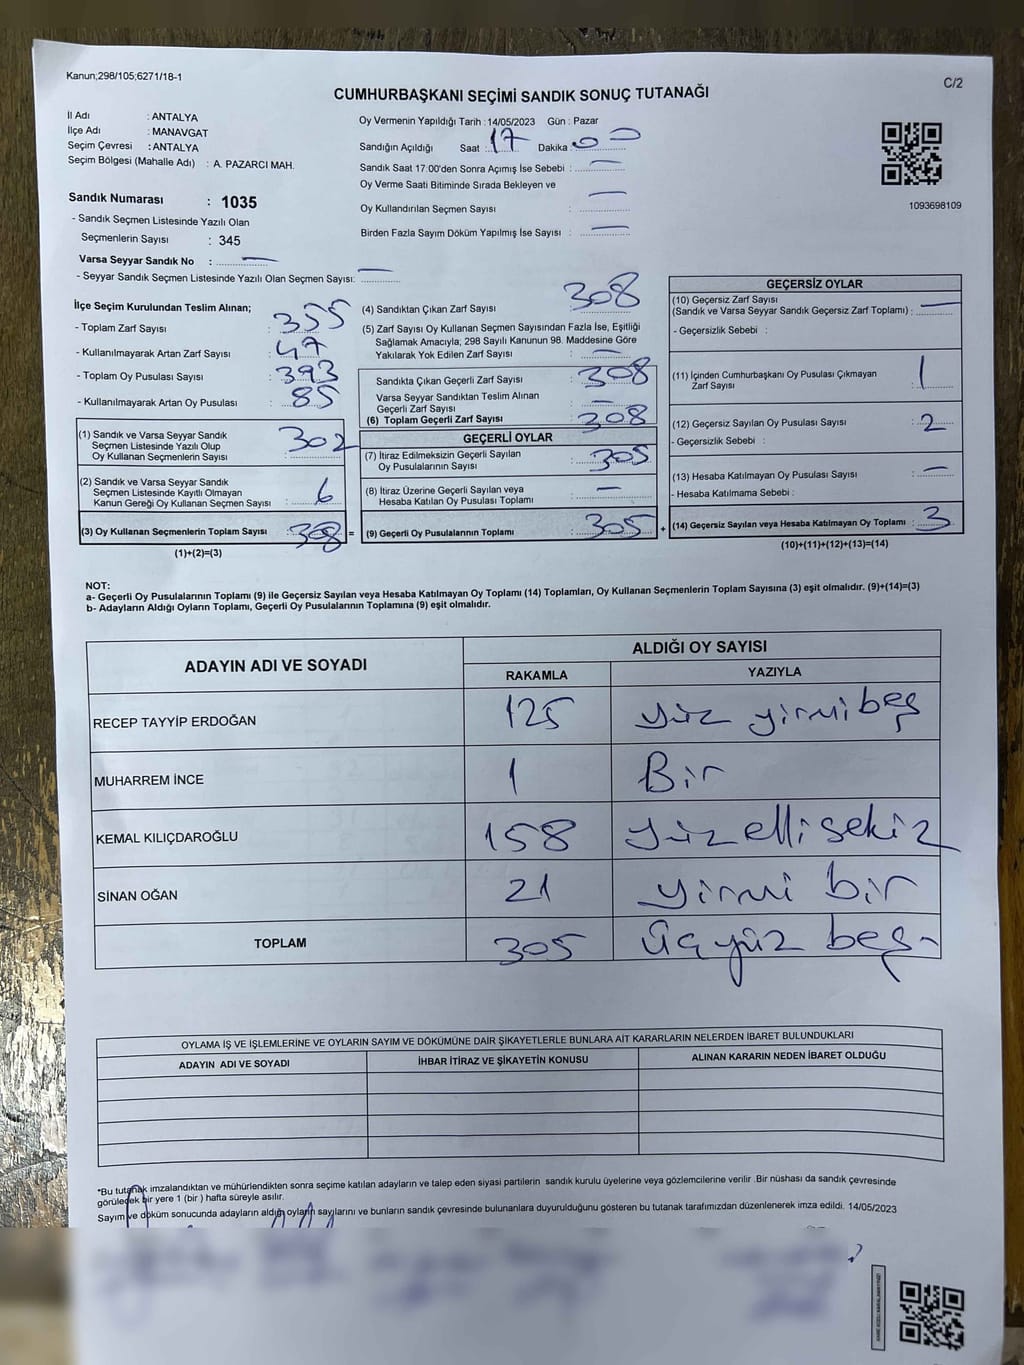 Kanun;298/105;6271/18-1
C/2
CUMHURBAŞKANI SEÇİMİ SANDIK SONUÇ TUTANAĞI
İl Adı : ANTALYA
İlçe Adı : MANAVGAT
Seçim Çevresi : ANTALYA
Seçim Bölgesi (Mahalle Adı) : A. PAZARCI MAH.
Sandık Numarası : 1035
- Sandık Seçmen Listesinde Yazılı Olan
Seçmenlerin Sayısı : 345
Varsa Seyyar Sandık No : —
- Seyyar Sandık Seçmen Listesinde Yazılı Olan Seçmen Sayısı: —
Oy Vermenin Yapıldığı Tarih : 14/05/2023 Gün : Pazar
Sandığın Açıldığı Saat : 17 Dakika : 00
Sandık Saat 17:00'den Sonra Açımış İse Sebebi : —
Oy Verme Saati Bitiminde Sırada Bekleyen ve
Oy Kullandırılan Seçmen Sayısı : —
Birden Fazla Sayım Döküm Yapılmış İse Sayısı : —
1093698109
İlçe Seçim Kurulundan Teslim Alınan;
- Toplam Zarf Sayısı : 355
- Kullanılmayarak Artan Zarf Sayısı : 47
- Toplam Oy Pusulası Sayısı : 393
- Kullanılmayarak Artan Oy Pusulası : 85
(1) Sandık ve Varsa Seyyar Sandık
Seçmen Listesinde Yazılı Olup
Oy Kullanan Seçmenlerin Sayısı : 302
(2) Sandık ve Varsa Seyyar Sandık
Seçmen Listesinde Kayıtlı Olmayan
Kanun Gereği Oy Kullanan Seçmen Sayısı : 6
(3) Oy Kullanan Seçmenlerin Toplam Sayısı : 308 =
(1)+(2)=(3)
(4) Sandıktan Çıkan Zarf Sayısı : 308
(5) Zarf Sayısı Oy Kullanan Seçmen Sayısından Fazla İse, Eşitliği
Sağlamak Amacıyla; 298 Sayılı Kanunun 98. Maddesine Göre
Yakılarak Yok Edilen Zarf Sayısı : —
Sandıkta Çıkan Geçerli Zarf Sayısı : 308
Varsa Seyyar Sandıktan Teslim Alınan
Geçerli Zarf Sayısı : —
(6) Toplam Geçerli Zarf Sayısı : 308
GEÇERLİ OYLAR
(7) İtiraz Edilmeksizin Geçerli Sayılan
Oy Pusulalarının Sayısı : 305
(8) İtiraz Üzerine Geçerli Sayılan veya
Hesaba Katılan Oy Pusulası Toplamı : —
(9) Geçerli Oy Pusulalarının Toplamı : 305 +
GEÇERSİZ OYLAR
(10) Geçersiz Zarf Sayısı
(Sandık ve Varsa Seyyar Sandık Geçersiz Zarf Toplamı) : —
- Geçersizlik Sebebi :
(11) İçinden Cumhurbaşkanı Oy Pusulası Çıkmayan
Zarf Sayısı : 1
(12) Geçersiz Sayılan Oy Pusulası Sayısı : 2
- Geçersizlik Sebebi :
(13) Hesaba Katılmayan Oy Pusulası Sayısı : —
- Hesaba Katılmama Sebebi :
(14) Geçersiz Sayılan veya Hesaba Katılmayan Oy Toplamı : 3
(10)+(11)+(12)+(13)=(14)
NOT:
a- Geçerli Oy Pusulalarının Toplamı (9) ile Geçersiz Sayılan veya Hesaba Katılmayan Oy Toplamı (14) Toplamları, Oy Kullanan Seçmenlerin Toplam Sayısına (3) eşit olmalıdır. (9)+(14)=(3)
b- Adayların Aldığı Oyların Toplamı, Geçerli Oy Pusulalarının Toplamına (9) eşit olmalıdır.
ADAYIN ADI VE SOYADI ALDIĞI OY SAYISI
RAKAMLA YAZIYLA
RECEP TAYYİP ERDOĞAN 125 yüz yirmi beş
MUHARREM İNCE 1 Bir
KEMAL KILIÇDAROĞLU 158 yüz elli sekiz
SİNAN OĞAN 21 yirmi bir
TOPLAM 305 Üçyüz beş-
OYLAMA İŞ VE İŞLEMLERİNE VE OYLARIN SAYIM VE DÖKÜMÜNE DAİR ŞİKAYETLERLE BUNLARA AİT KARARLARIN NELERDEN İBARET BULUNDUKLARI
ADAYIN ADI VE SOYADI İHBAR İTİRAZ VE ŞİKAYETİN KONUSU ALINAN KARARIN NEDEN İBARET OLDUĞU
*Bu tutanak imzalandıktan ve mühürlendikten sonra seçime katılan adayların ve talep eden siyasi partilerin sandık kurulu üyelerine veya gözlemcilerine verilir .Bir nüshası da sandık çevresinde
görülecek bir yere 1 (bir ) hafta süreyle asılır.
Sayım ve döküm sonucunda adayların aldığı oyların sayılarını ve bunların sandık çevresinde bulunanlara duyurulduğunu gösteren bu tutanak tarafımızdan düzenlenerek imza edildi. 14/05/2023